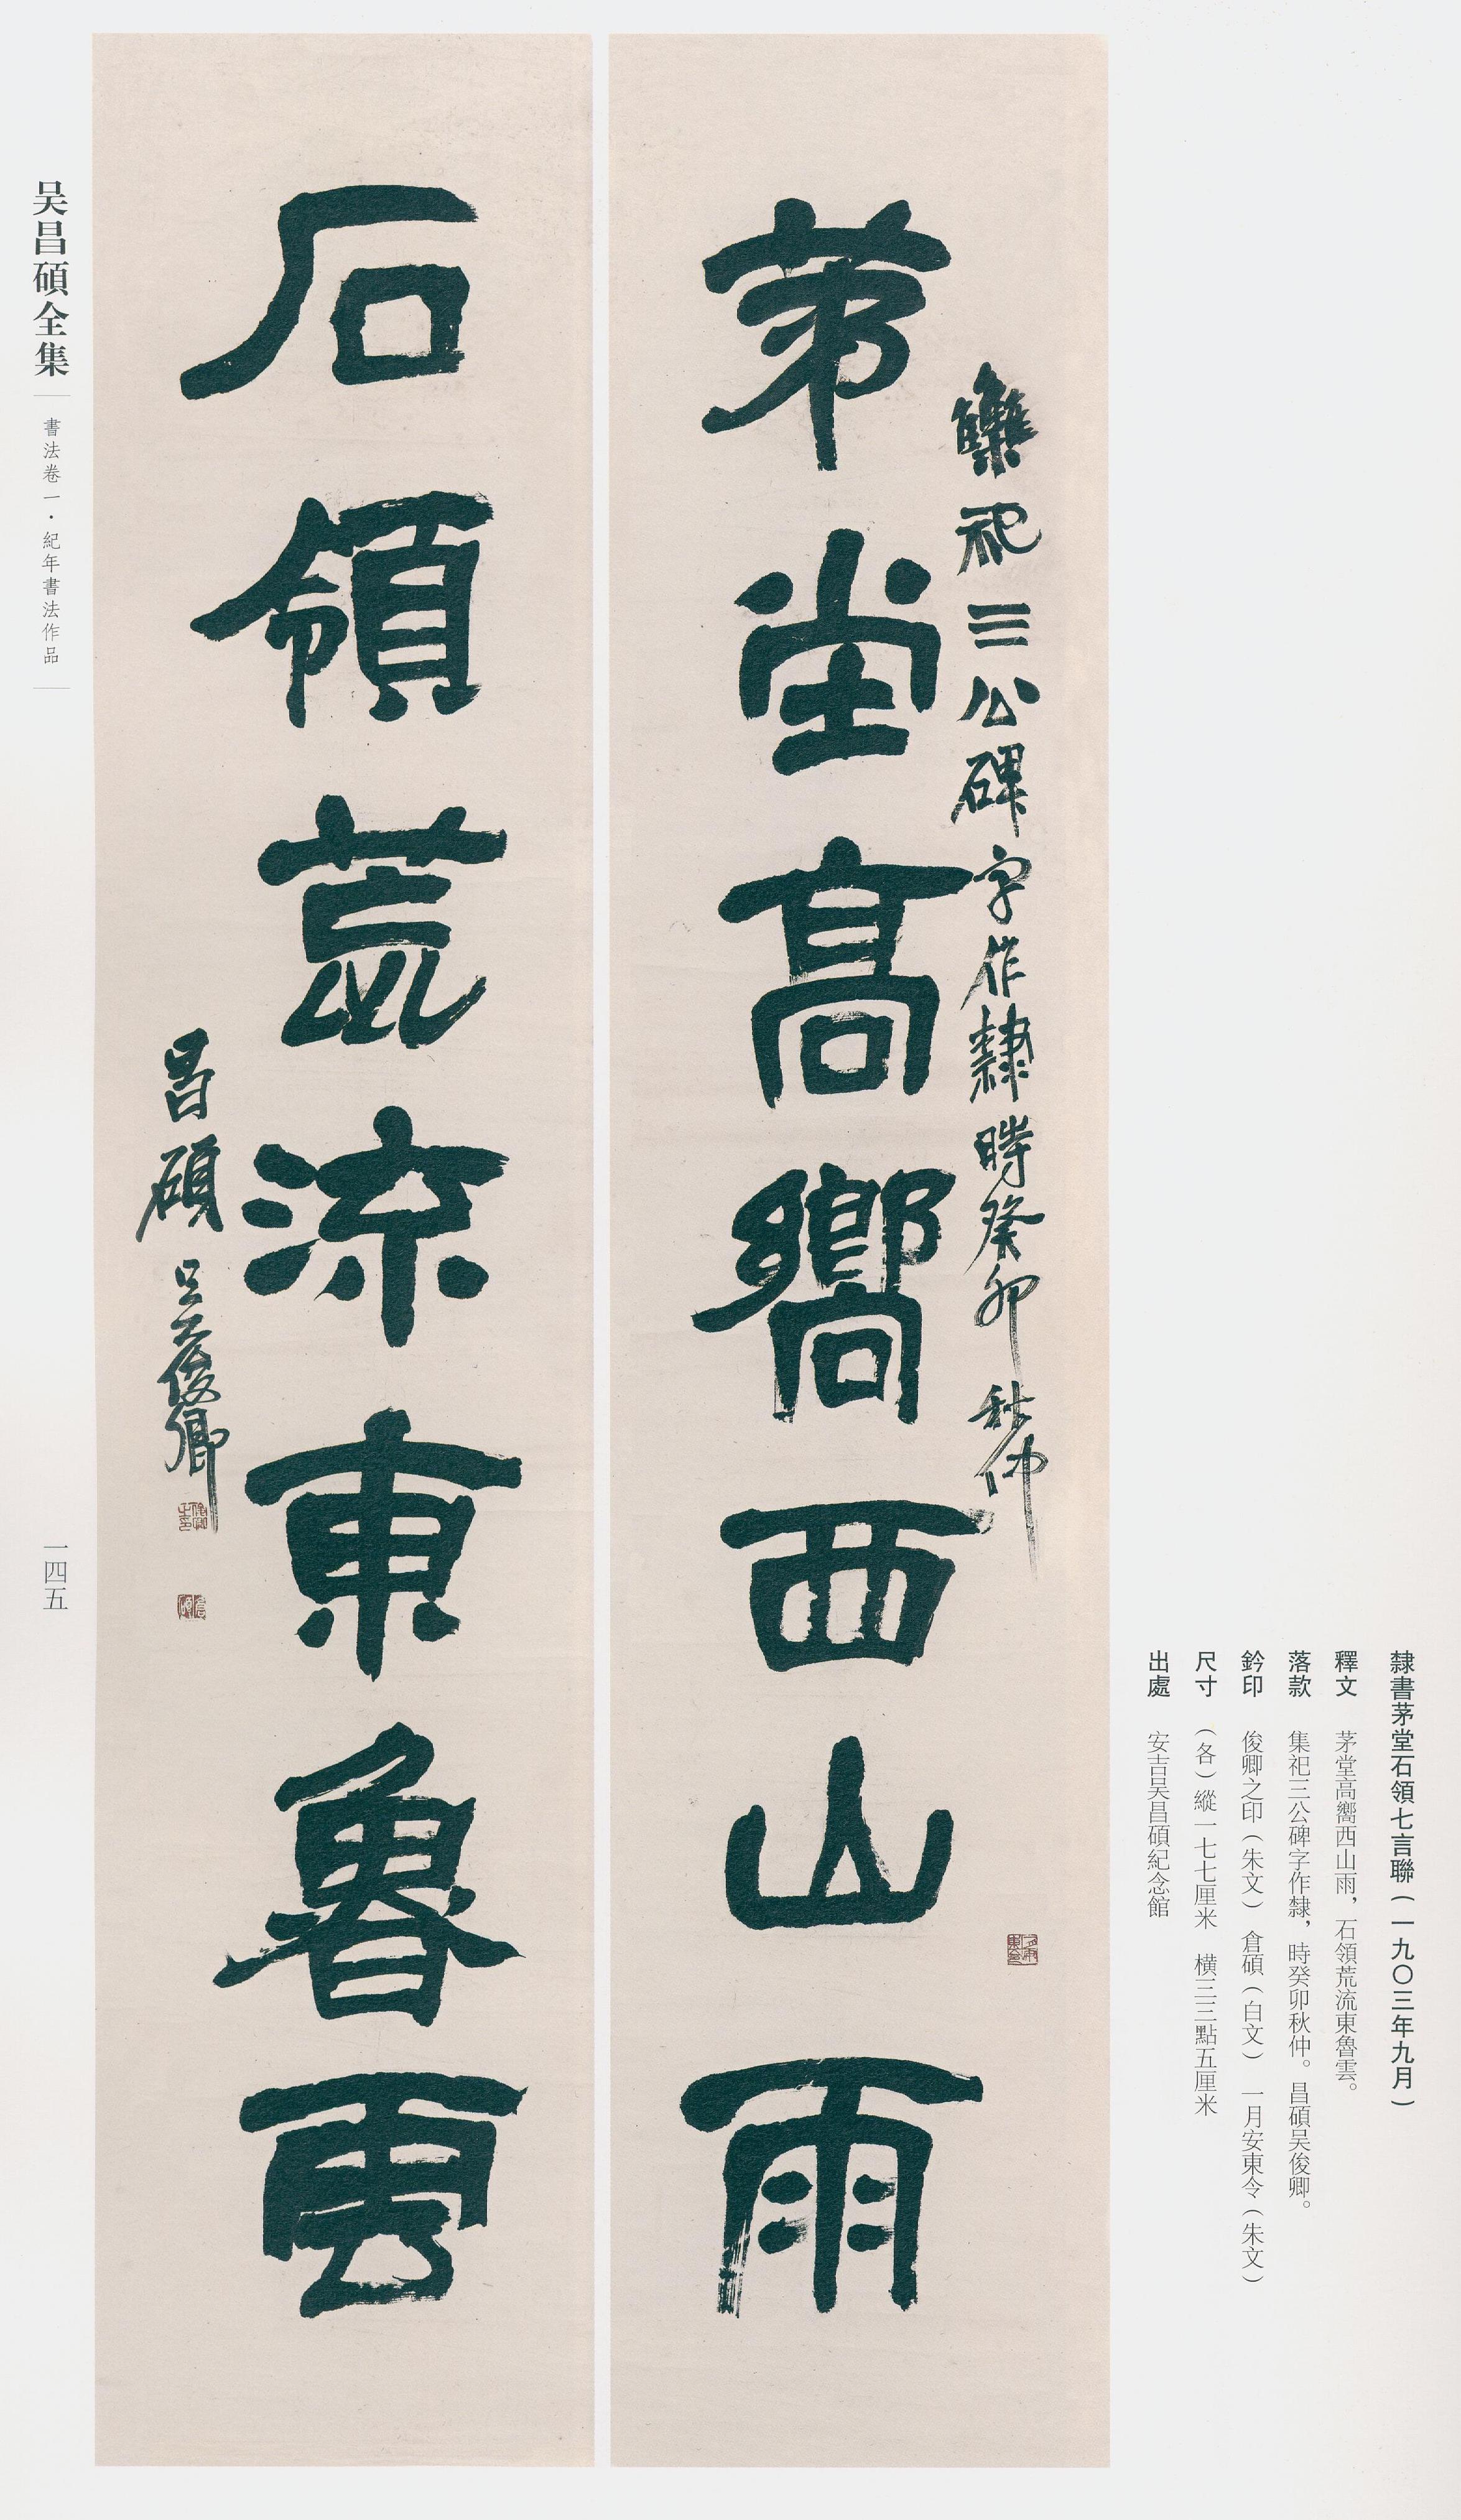 隸書茅堂石領七言聯（一九〇三年九月）
釋文　茅堂高嚮西山雨，石領荒流東魯雲。
落款　集祀三公碑字作隸，時癸卯秋仲。昌碩吴俊卿。
鈐印　俊卿之印（朱文）　倉碩（白文）　一月安東令（朱文）
尺寸　（各）縱一七七厘米　横三三點五厘米
出處　安吉吴昌碩紀念館
雧祀三公碑字作隸時癸卯秋仲
一月安東令
茅堂高嚮西山雨
石領荒流東魯雲
昌碩吴俊卿
俊卿之印
倉碩
吴昌碩全集
書法卷一・紀年書法作品
一四五